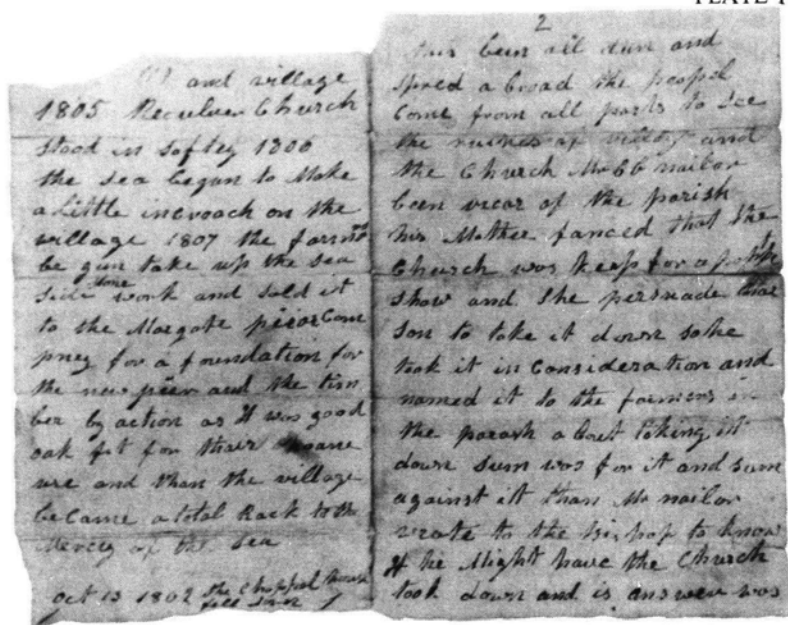 PLATE I
(1) and village
1805 Reculver Church
Stood in softey 1806
the sea begun to Make
a Little incroach on the
village 1807 the farmers
be gun take up the sea
side stone work and sold it
to the Margate pieor Com
pney for a foundation for
the new pier and the tim
ber by action as it was good
oak fit for thair
ure and than the village
became a total Rack to the
Mercey of the Sea
Oct 13 1802 the Chappel house
fell down
2
been all dun and
spred a broad the peopel
Come from all parts to see
the ruines of village and
the Church Mr CC nailor
been vicar of the parish
his Mother fanced that the
Church was keep for a
show and she persuade thar
son to take it down so he
took it in Consideration and
named it to the farmers in
the parash a bout taking it
down sum was for it and sum
against itt than Mr nailor
wrote to the bishop to know
if he Might have the Church
took down and is answer was